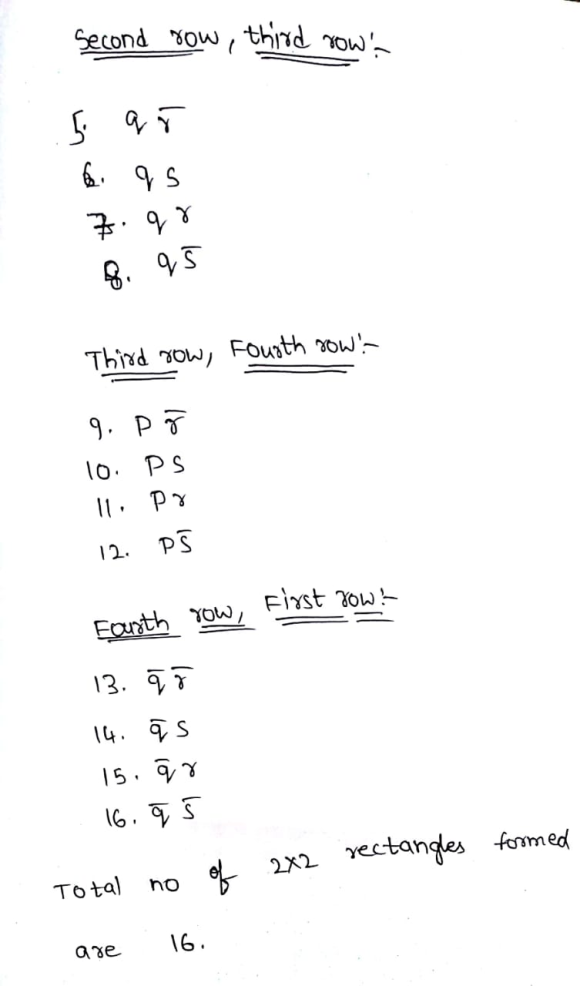 Second row, third row:-
5. q r̅
6. q s
7. q r
8. q s̅
Third row, Fourth row:-
9. P r̅
10. P s
11. P r
12. P s̅
Fourth row, First row:-
13. q̅ r̅
14. q̅ s
15. q̅ r
16. q̅ s̅
Total no of 2x2 rectangles formed
are 16.